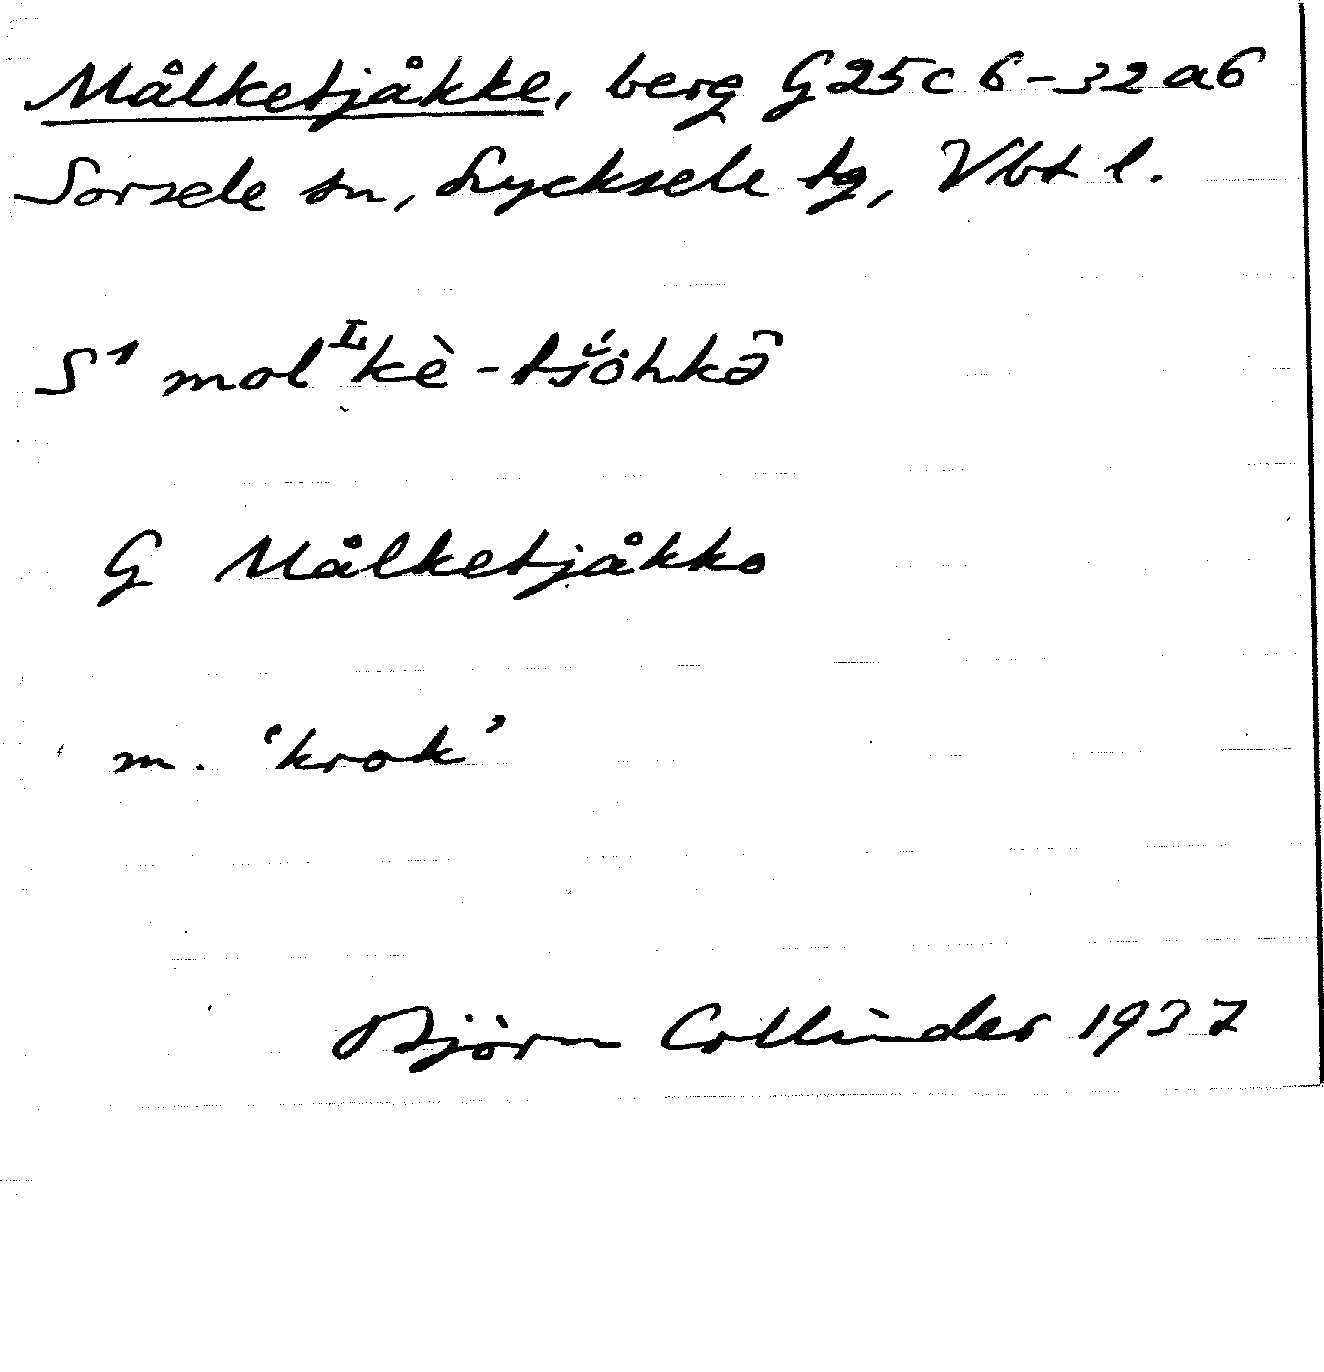 Målketjåkke, berg G25c6-32a6
Sorsele sn, Lycksele tg, Vbt l.
S1 mol I kè-tsö́hkə̂
G Målketjåkko
m. 'krok'
Björn Collinder 1937